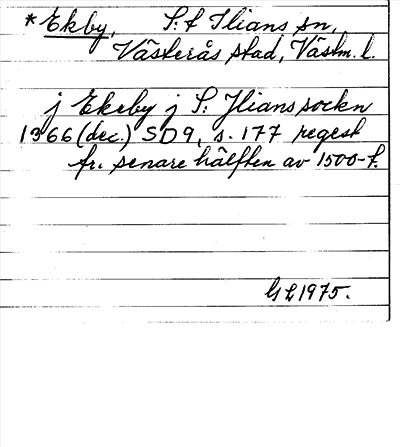 *Ekby, S:t Ilians sn,
Västerås stad, Västm. l.
j Ekeby j S: Jlians sockn
1366 (dec.) SD9, s. 177 regest
fr. senare hälften av 1500-t.
GL 1975.